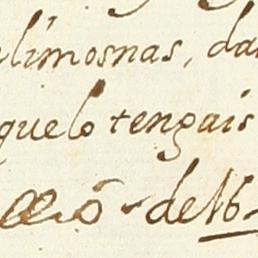 limosnas, da
quelo tengais
de 16